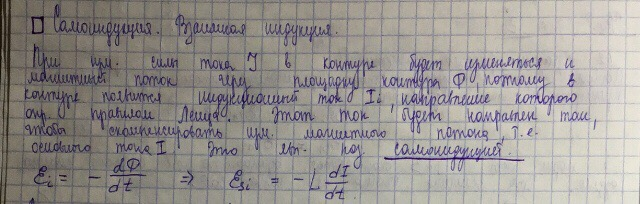 Самоиндукция. Взаимная индукция.
При изм. силы тока I в контуре будет изменяться и
магнитный поток через площадку контура Ф поэтому в
контуре появится индукционный ток Ii, направление которого
опр. правилом Ленца. Этот ток будет направлен так,
чтобы скомпенсировать изм. магнитного потока т.е.
основного тока I. Это явл. наз. самоиндукцией.
Ɛi = - dФ/dt ⇒ Ɛsi = -L dI/dt